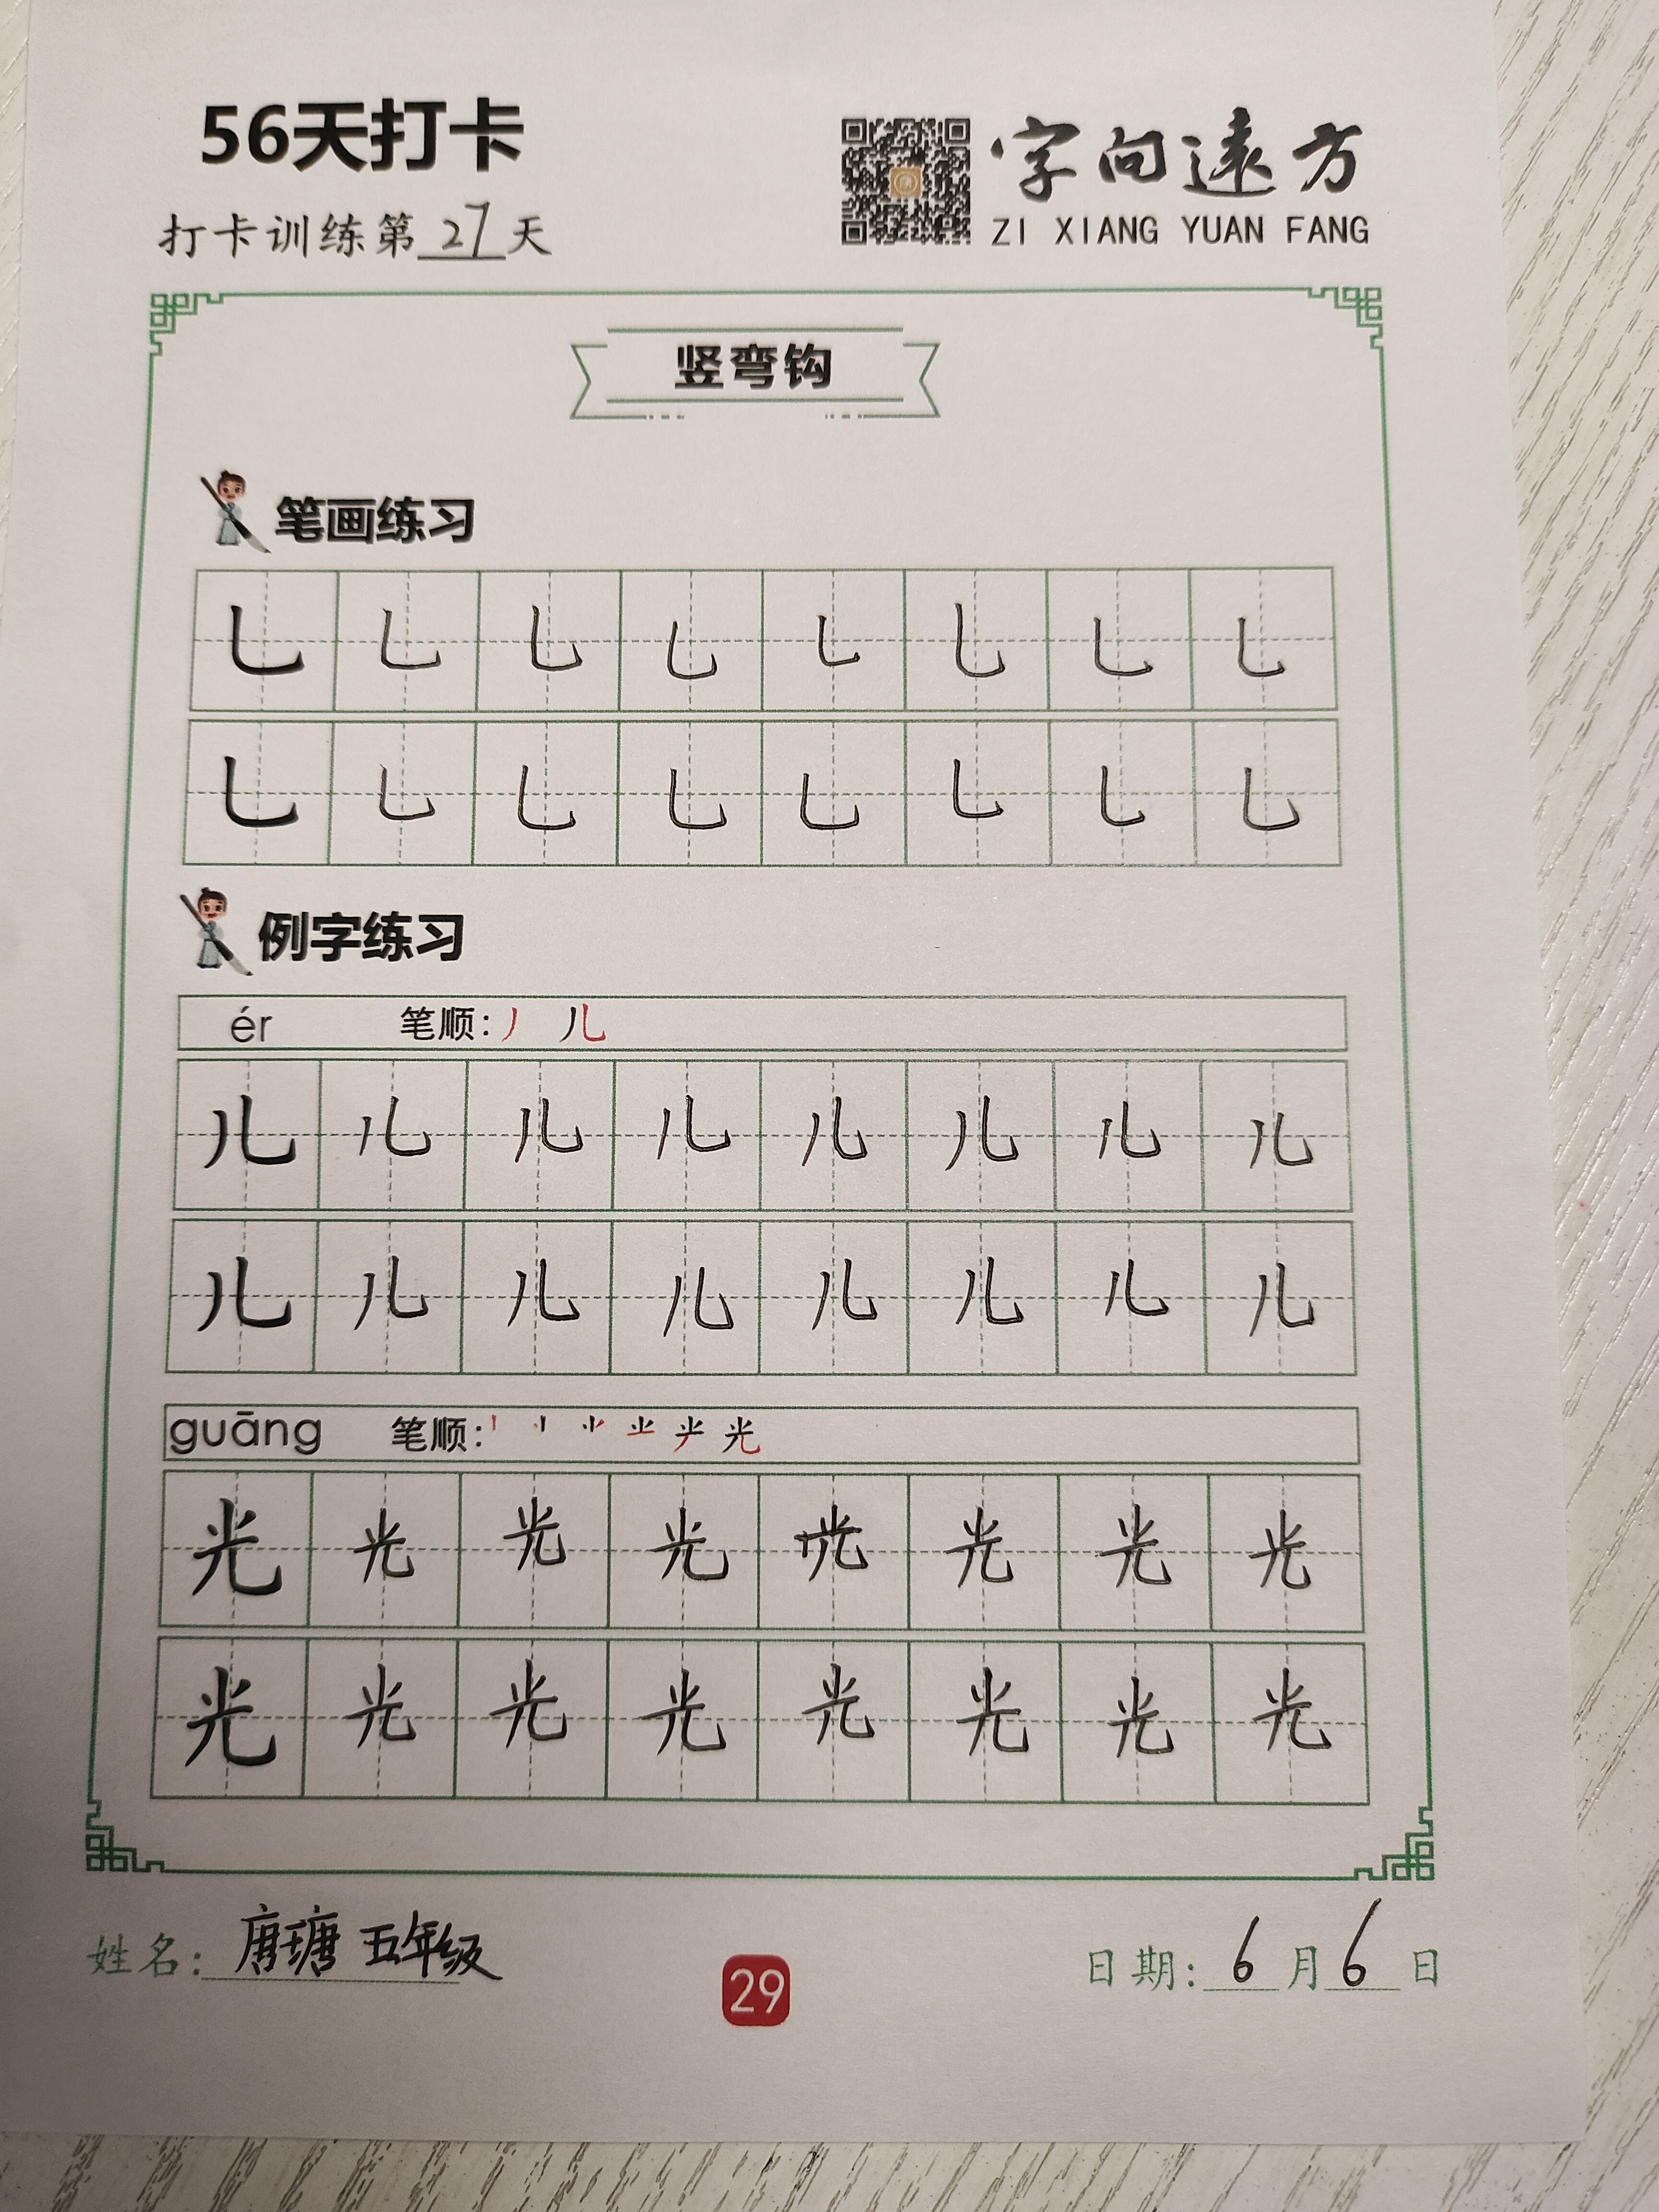 56天打卡
字向远方
打卡训练第27天
ZI XIANG YUAN FANG
竖弯钩
笔画练习
乚 乚 乚 乚 乚 乚 乚 乚
乚 乚 乚 乚 乚 乚 乚 乚
例字练习
ér 笔顺: 丿 儿
儿 儿 儿 儿 儿 儿 儿 儿
儿 儿 儿 儿 儿 儿 儿 儿
guāng 笔顺: 光
光 光 光 光 光 光 光 光
光 光 光 光 光 光 光 光
姓名: 唐瑭 五年级
29
日期: 6月6日